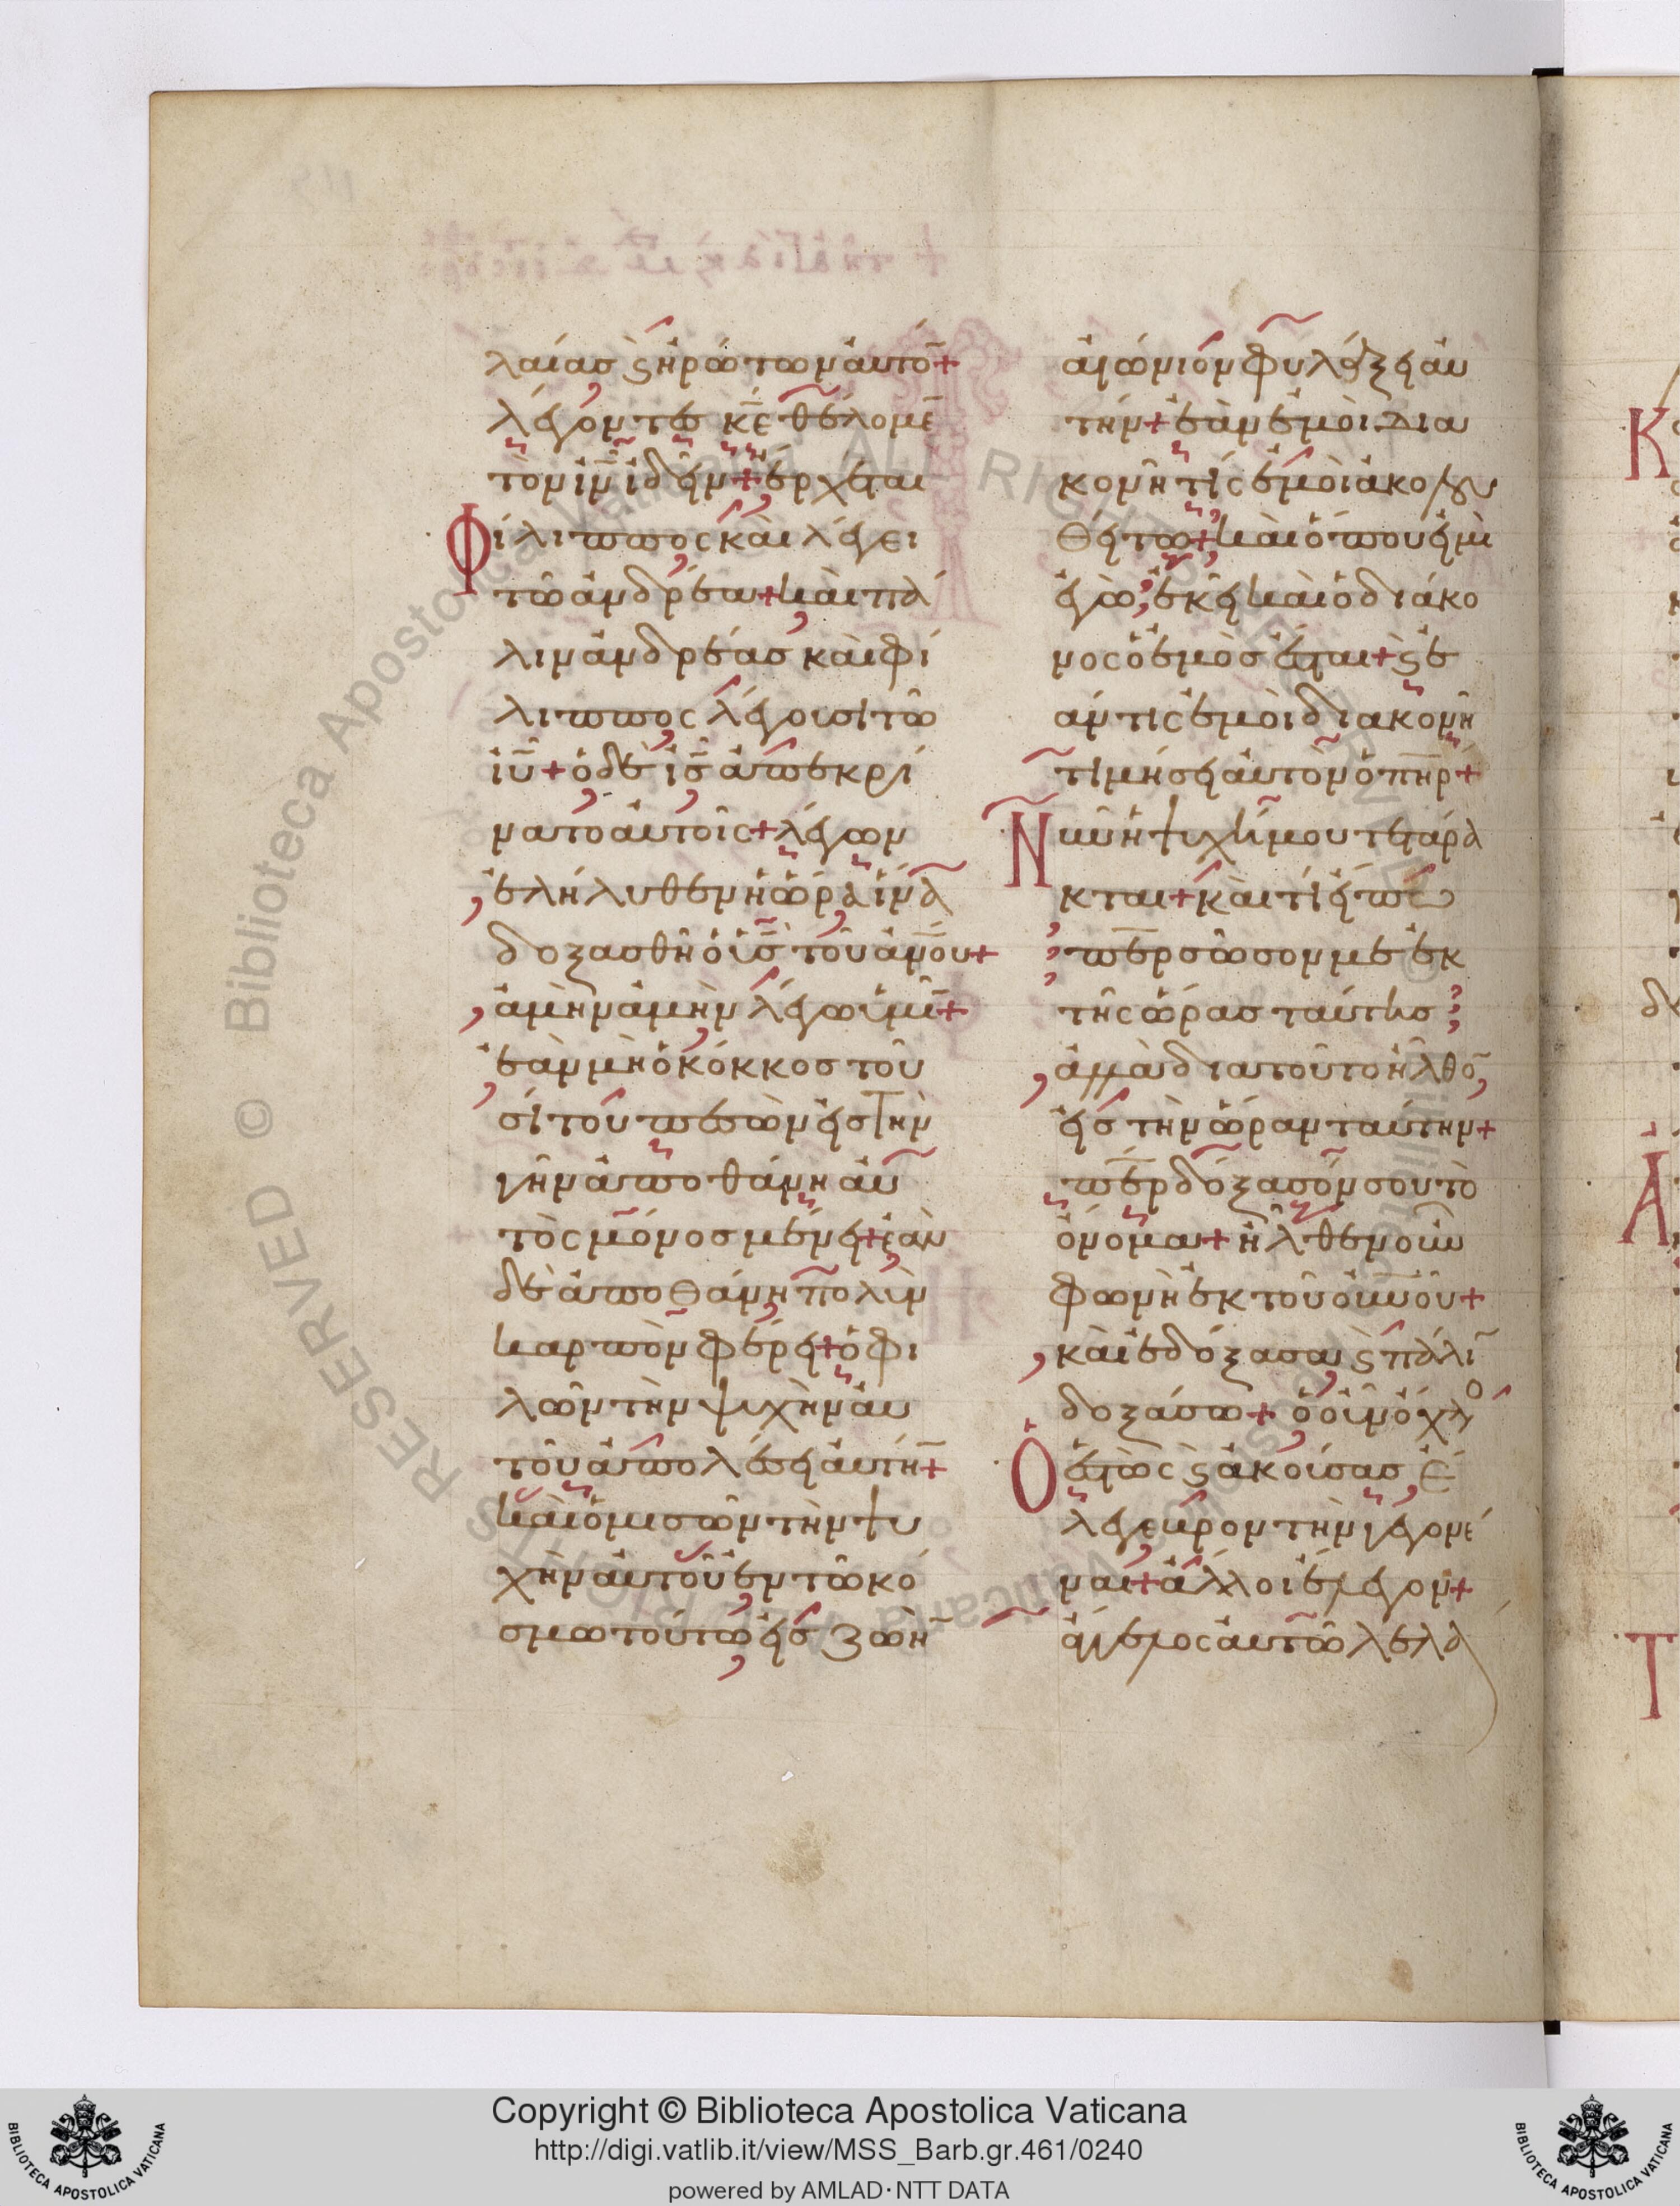 λαίας ϗ ἠρώτων αὐτό̄+
λέγοντες κ̄ε θέλομε̄
τὸν ῑν ἰδεῖν+ ἔρχεται
Φίλιππος καὶ λέγει
τῶ ἀνδρέα+ καὶ πά
λιν ἀνδρέας καὶ φί
λιππος λέγουσι τῶ
ῑυ+ ὁ δὲ ῑς ἀπεκρί
νατο αὐτοῖς+ λέγων
ἐλήλυθεν ἡ ὥρα ἵνα
δοξασθῆ ὁ ῡς τοῦ ἀν̄ου+
ἀμὴν ἀμὴν λέγω ὑμῖ̄+
ἐὰν μὴ ὁ κόκκος τοῦ
σίτου πεσὼν εἰς τὴν
γῆν ἀποθάνη αὐ
τὸς μόνος μένει+ ἐὰν
δὲ ἀποθάνη πολὺν
καρπὸν φέρει+ ὁ φι
λῶν τὴν ψυχὴν αὐ
τοῦ ἀπολέσει αὐτή̄+
καὶ ὁ μισῶν τὴν ψυ
χὴν αὐτοῦ ἐν τῶ κό
σμω τούτω εἰς ζωὴ̄
αἰώνιον φυλάξει αὐ
τήν+ ἐὰν ἐμοὶ δια
κονῆ τίς ἐμοὶ ἀκολου
θείτω+ καὶ ὅπου εἰμὶ
ἐγὼ, ἐκεῖ καὶ ὁ διάκο
νος ὁ ἐμὸς ἔσται+ ϗ ἐ
άν τις ἐμοὶ διακονῆ
τιμήσει αὐτὸν ὁ π̄ηρ+
Νῦν ἡ ψυχή μου τετάρα
κται+ καὶ τί εἴπω
π̄ερ σῶσον με ἐκ
τῆς ὥρας ταύτης
ἀλλὰ διατοῦτο ἦλθο̄,
εἰς τὴν ὥραν ταύτην+
π̄ερ δόξασόν σου τὸ
ὄνομα+ ἦλθεν οὖν
φωνὴ ἐκ τοῦ οὐ̄νοῦ+
καὶ ἐδόξασα, ϗ πάλῑ
δοξάσω+ ὁ οὖν ὄχλο
Ὁ ἑστὼς ϗ ἀκούσας ἔ
λεγε βροντὴν γεγονέ
ναι+ ἄλλοι ἔλεγον+
ἄγγελος αὐτῶ λελά
Copyright © Biblioteca Apostolica Vaticana
http://digi.vatlib.it/view/MSS_Barb.gr.461/0240
powered by AMLAD·NTT DATA